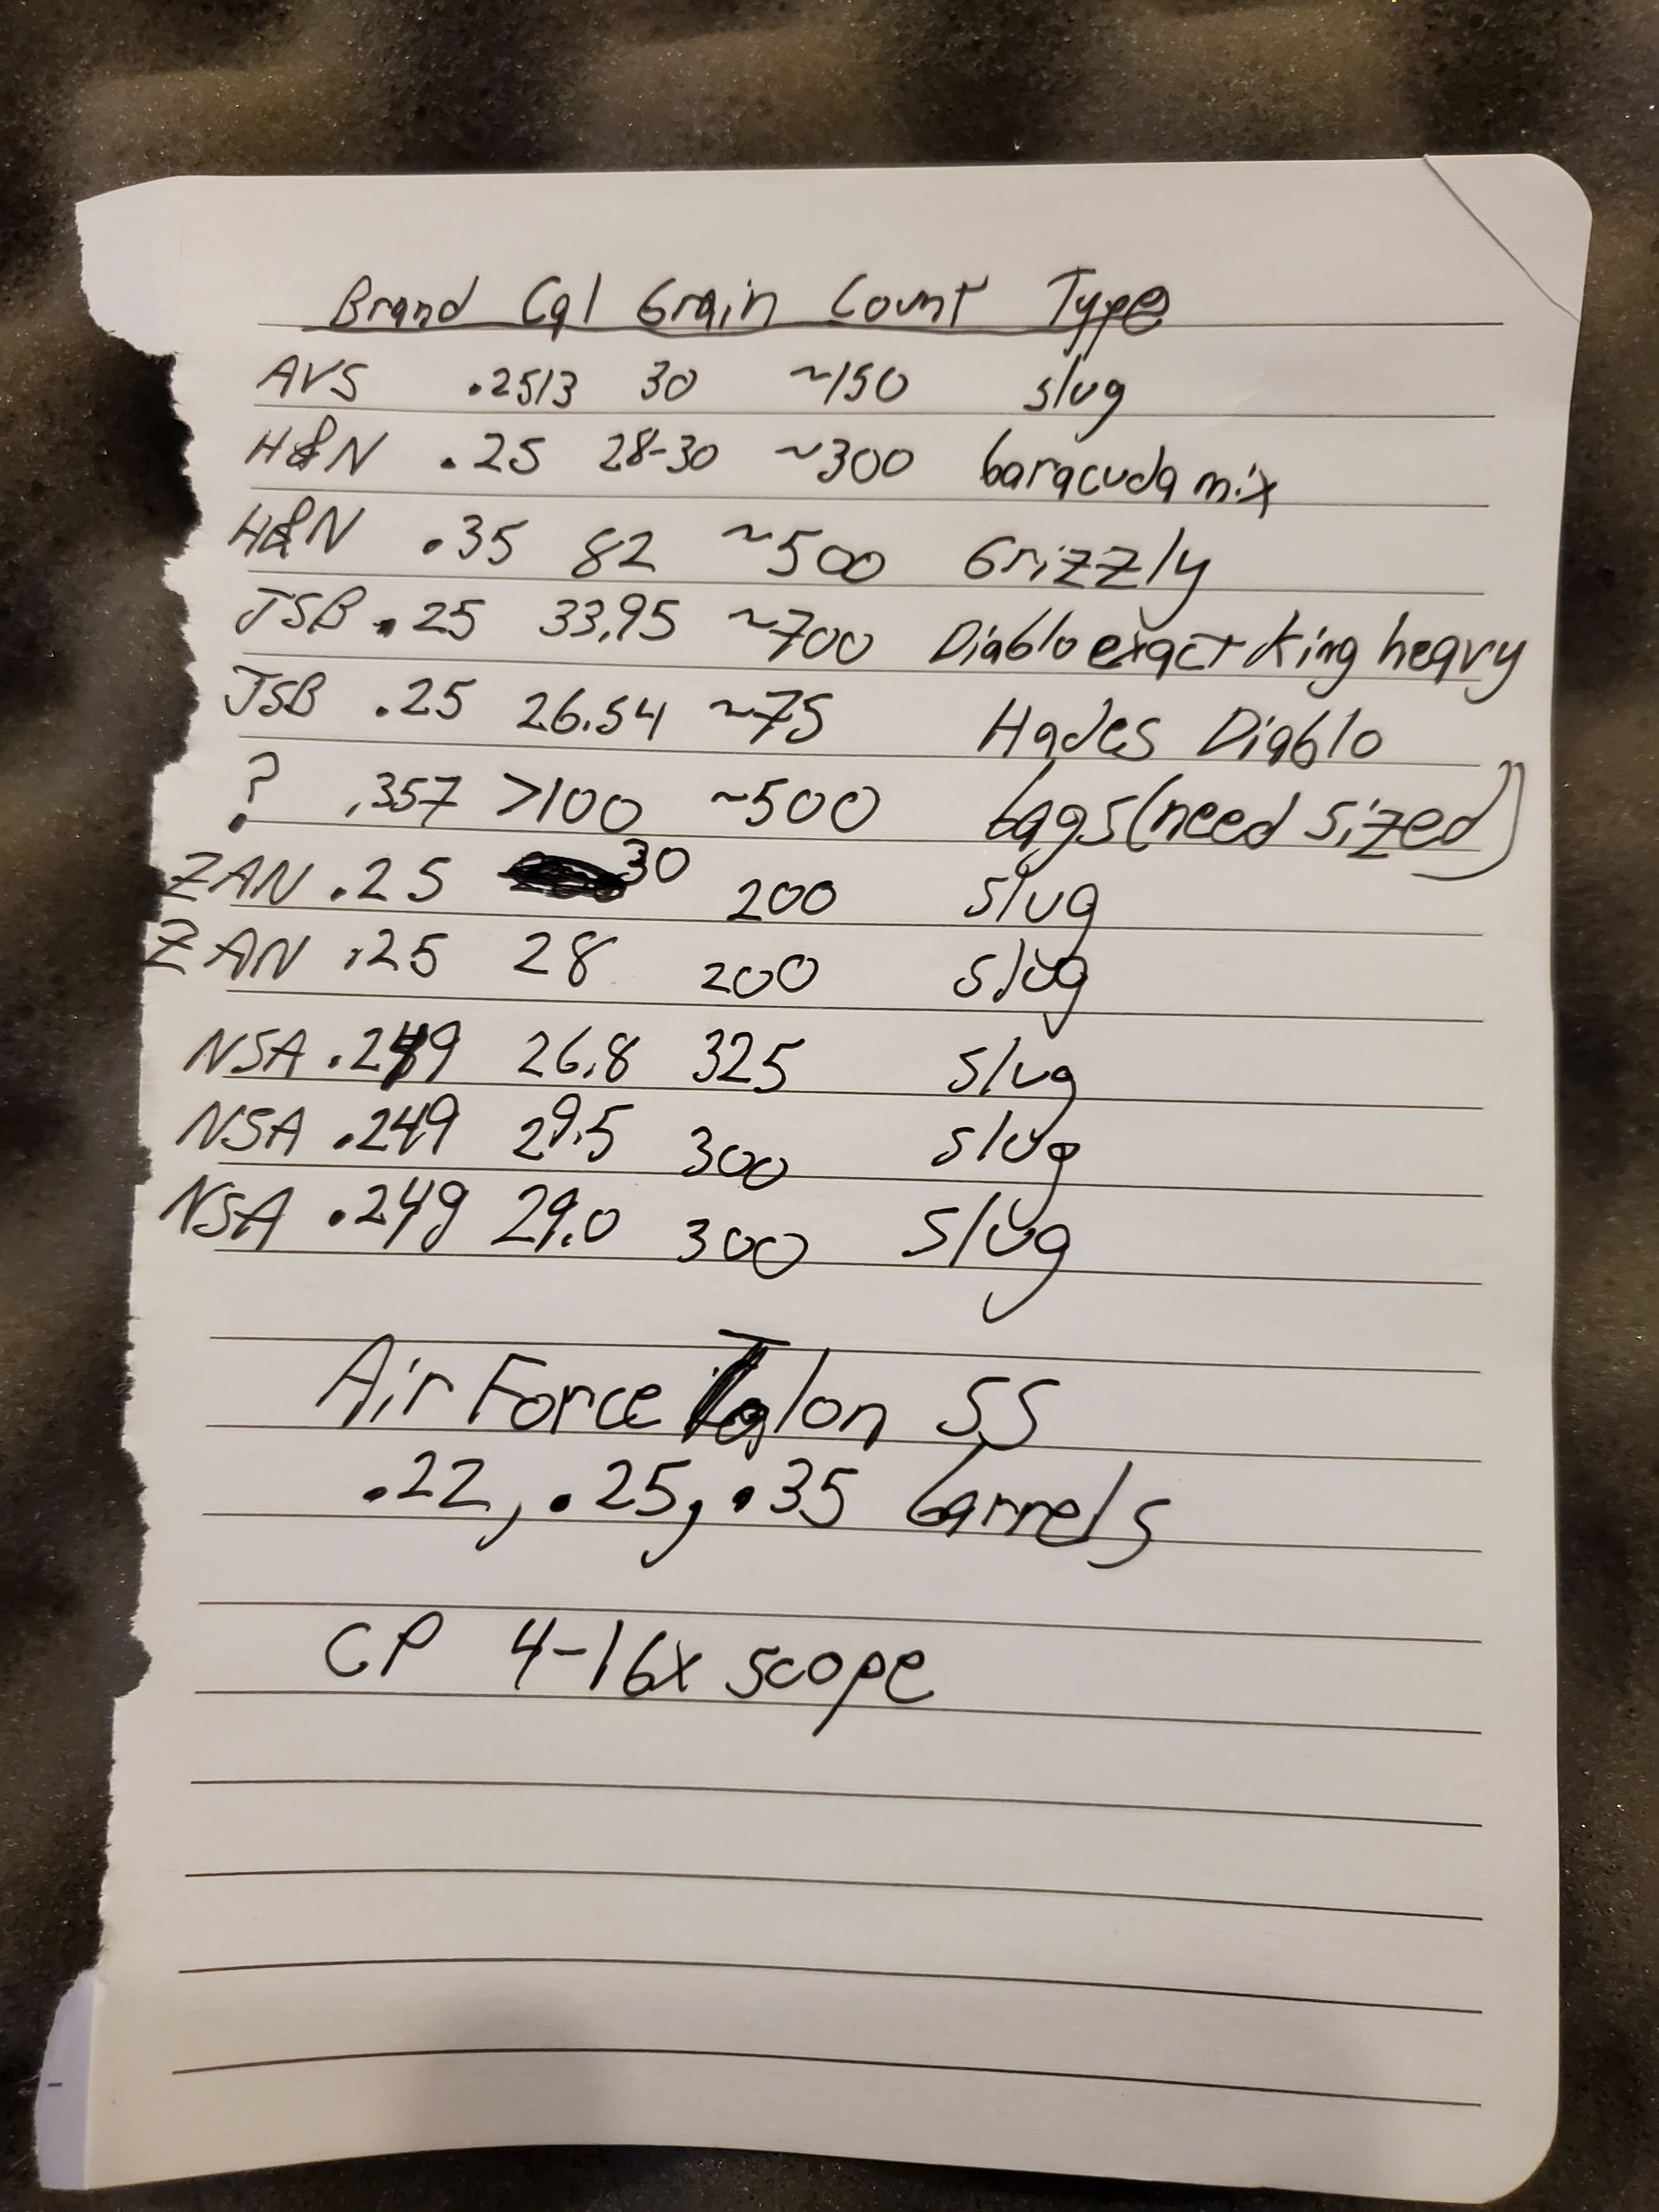 Brand Cal Grain Count Type
AVS .2513 30 ~150 slug
H&N .25 28-30 ~300 baracuda mix
H&N .35 82 ~500 Grizzly
JSB .25 33.95 ~700 Diablo exact King heavy
JSB .25 26.54 ~75 Hades Diablo
? .357 >100 ~500 bags (need sized)
ZAN .25 30 200 slug
ZAN .25 28 200 slug
NSA .249 26.8 325 slug
NSA .249 29.5 300 slug
NSA .249 29.0 300 slug
Air Force Talon SS
.22, .25, .35 barrels
CP 4-16x scope